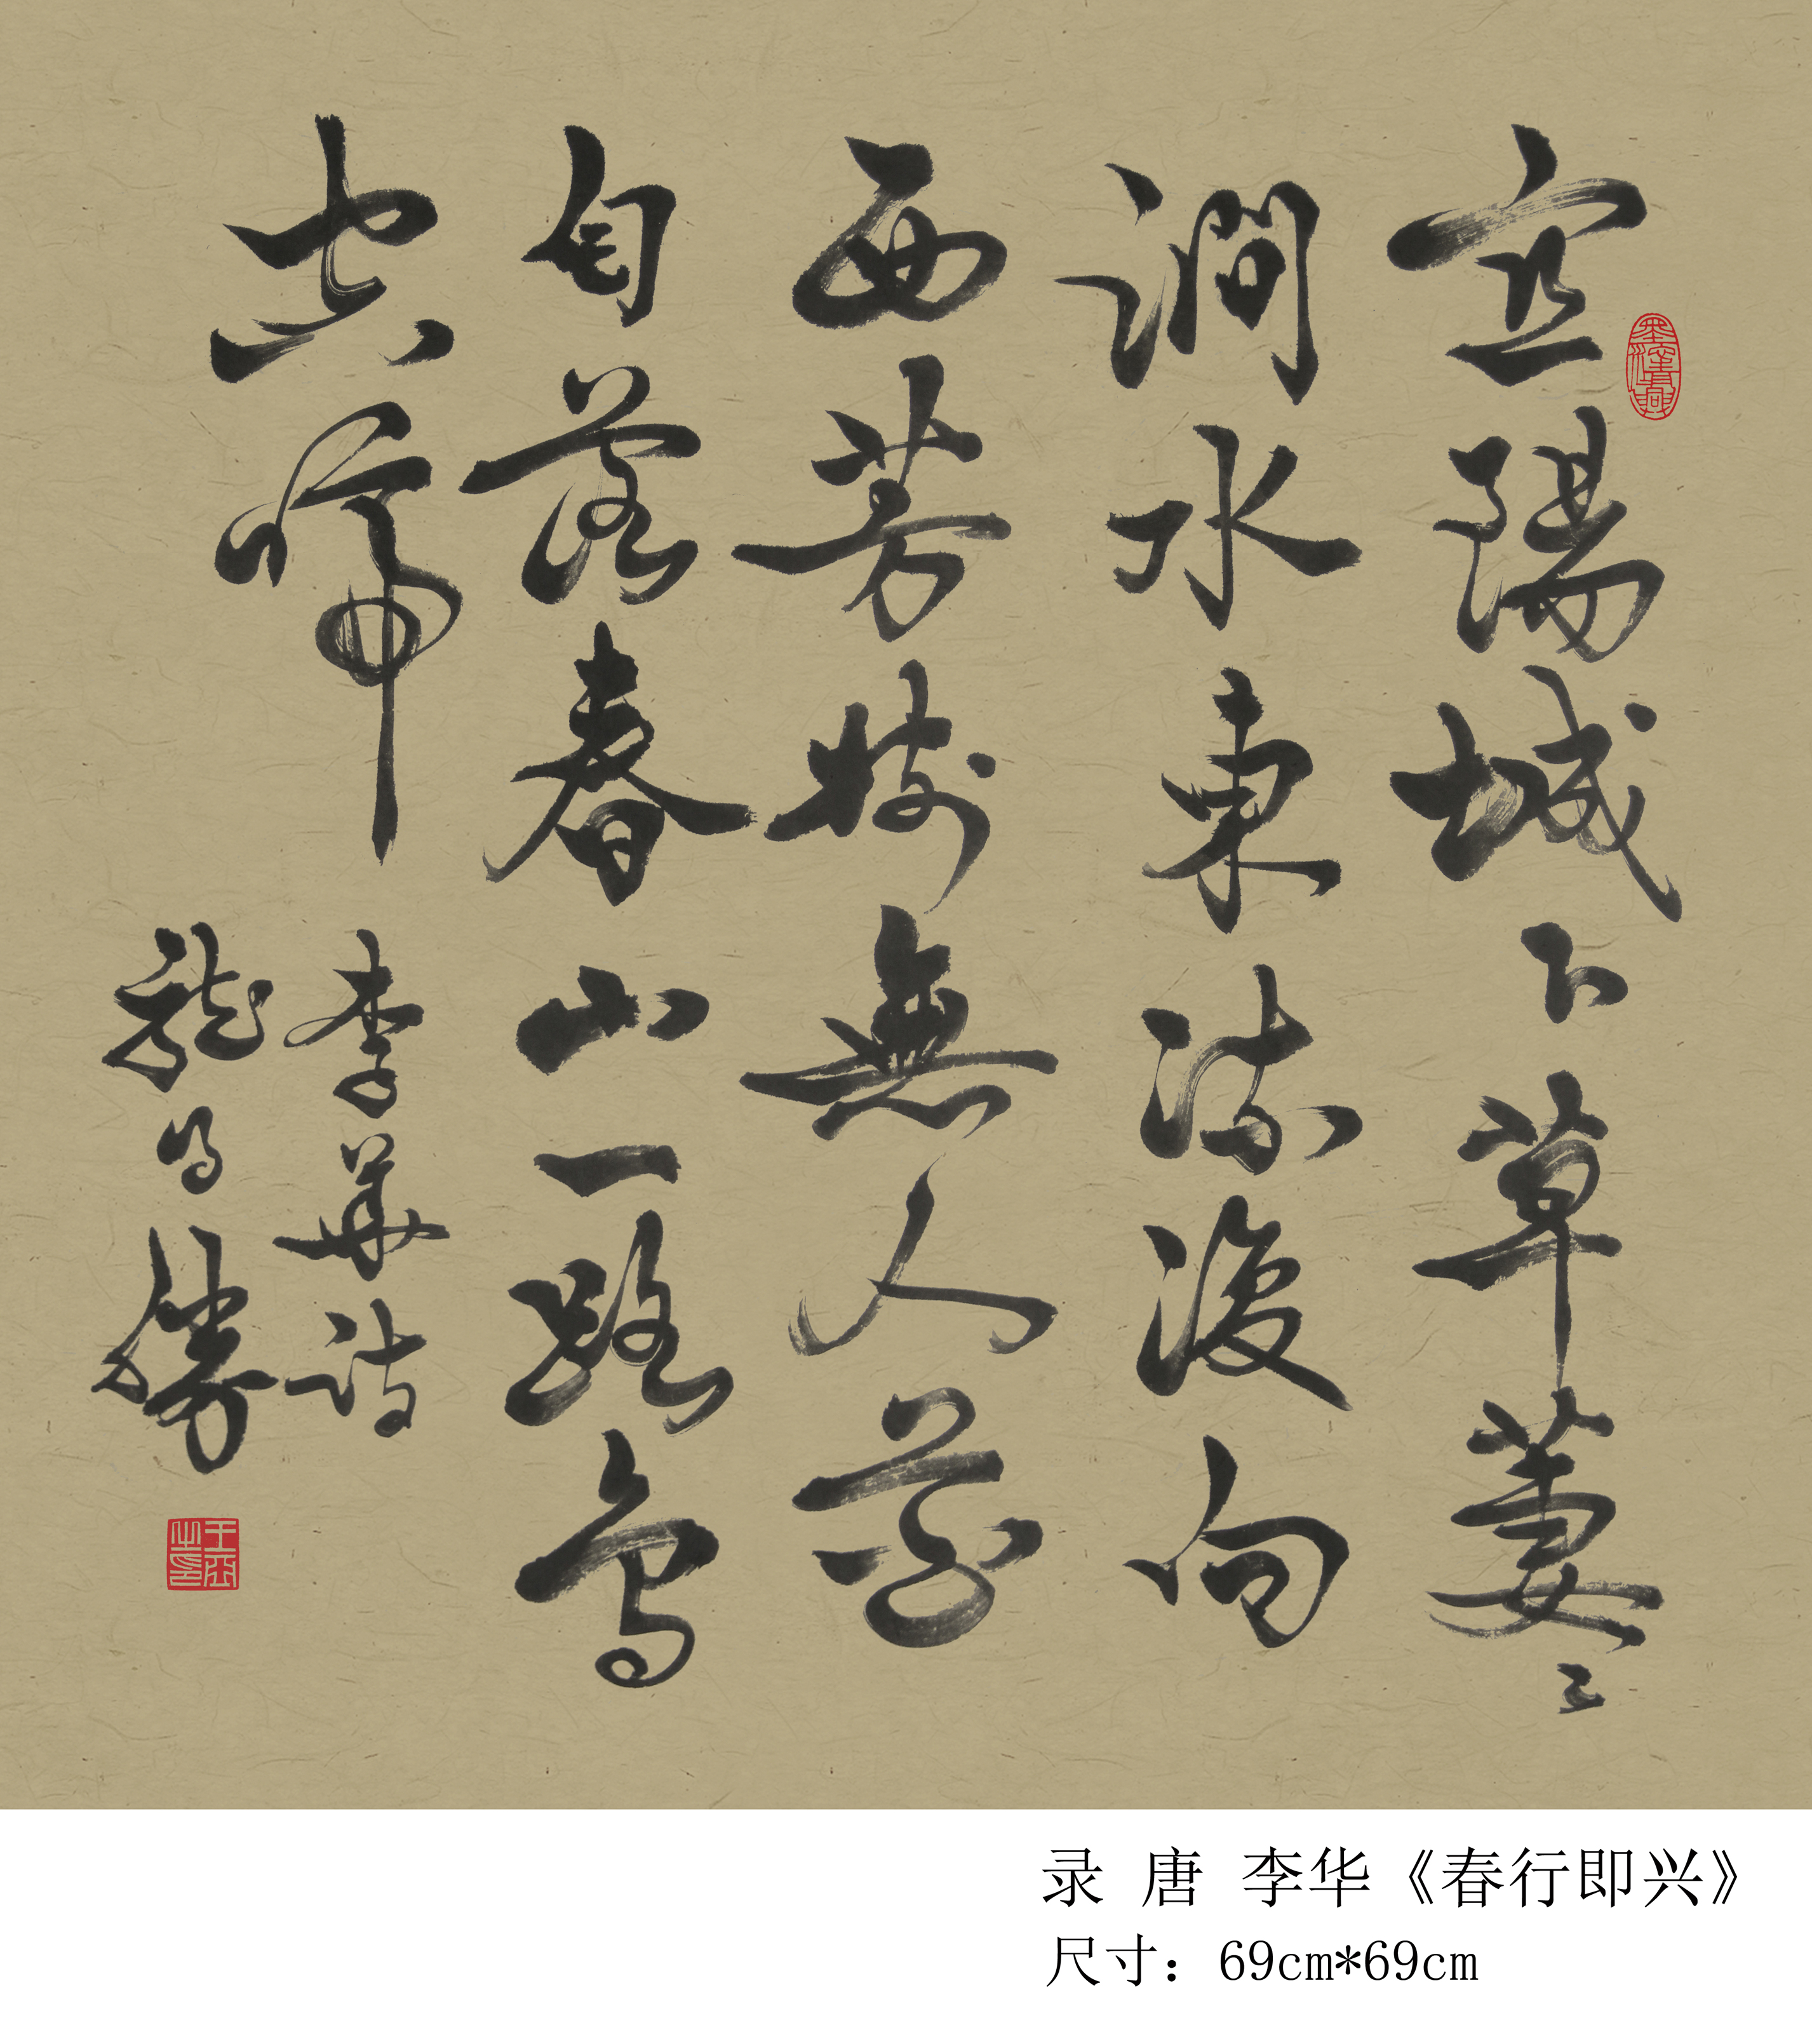 宜陽城下草萋〻
澗水東流復向
西芳樹無人花
自落春山一路鳥
空啼
李華詩
龍 勝
录 唐 李华《春行即兴》
尺寸：69cm*69cm